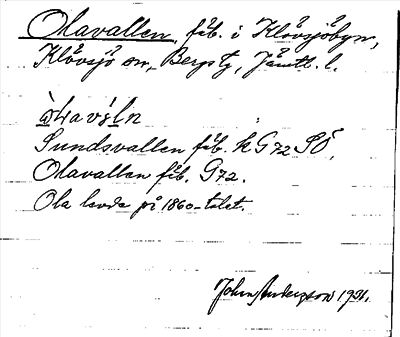 Olavallen, fäb. i Klövsjöbyn,
Klövsjö sn, Bergs tg, Jämtl. l.
Sundsvallen fäb. k G72 SÖ,
Olavallen fäb. G72.
Ola levde på 1860-talet.
John Anderzson 1931.